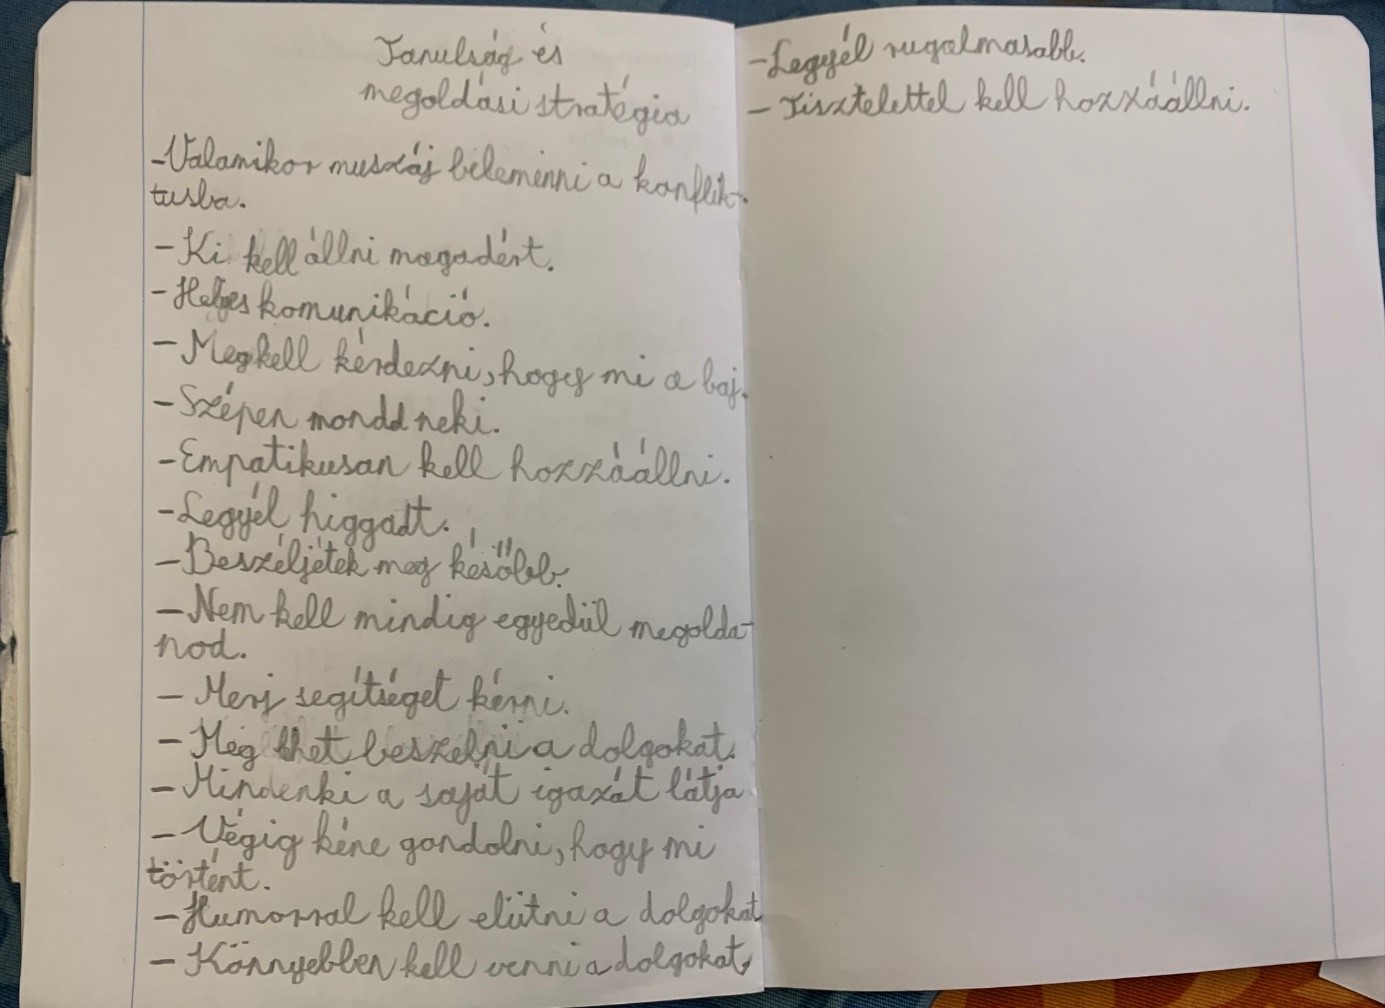 Tanulság és
megoldási stratégia
-Valamikor muszáj belemenni a konflik-
tusba.
- Ki kell állni magadért.
- Helyes komunikáció.
- Megkell kérdezni, hogy mi a baj.
- Szépen mondd neki.
- Empatikusan kell hozzáállni.
- Legyél higgadt.
- Beszéljétek meg később.
- Nem kell mindig egyedül megolda-
nod.
- Merj segítséget kérni.
- Meg lhet beszélni a dolgokat.
- Mindenki a saját igazát látja
- Végig kéne gondolni, hogy mi
történt.
- Humorral kell elütni a dolgokat
- Könnyebben kell venni a dolgokat,
- Legyél rugalmasabb.
- Tisztelettel kell hozzáállni.